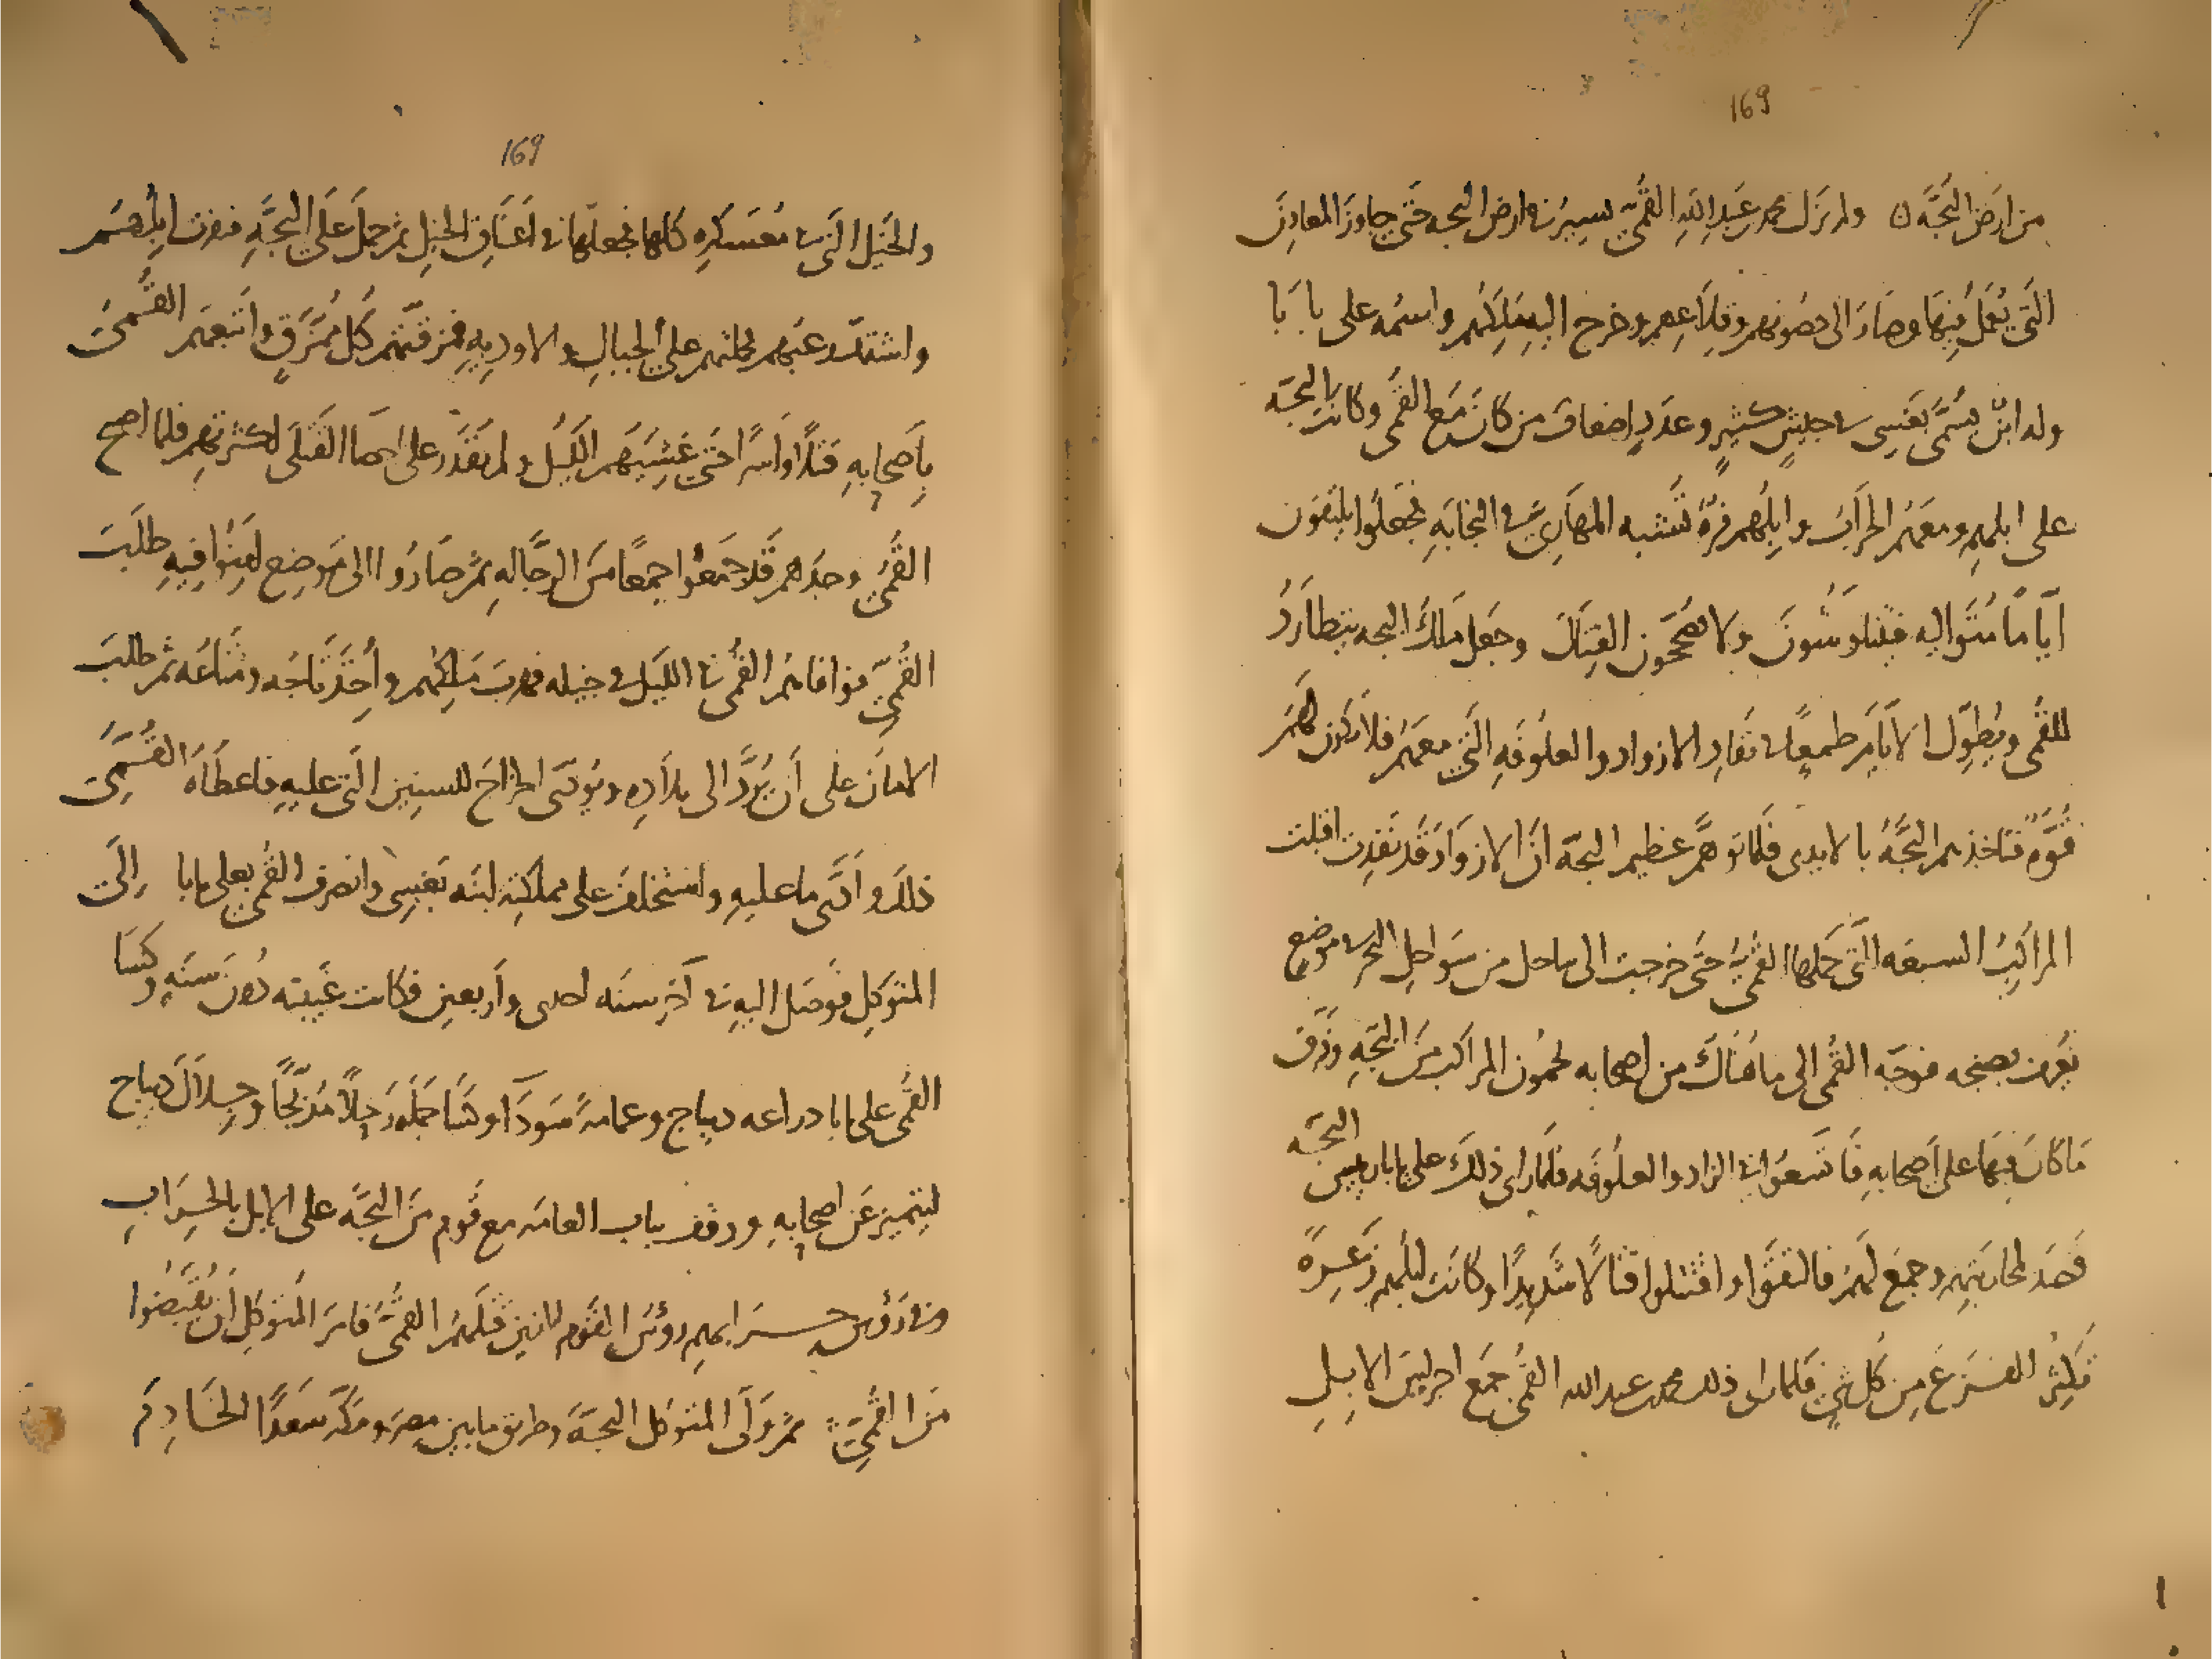 169
من ارض البجَّه ٥ ولم يزل محمد بن عَبدِ اللهِ القُمىّ يسير في ارض البجه حتى جاوز المعادِن
التى يُعمَل فيها وصَار الى حصُونهم وقِلاعهم وخرج اليه ملكُهم واسمُه على بابا
وله ابنٌ يُسَمّى بغسى في جيشٍ كثيرٍ وعددٍ اضعاف من كان مع القُمى وكانت البجّه
على ابلهم ومعَهُم الحراب وابِلُهم فُرّةٌ تشبه المهارى في النجابَهِ فجعلوا يلتقون
ايّامًا مُتَواليه فيتناوشُونَ ولا يُصحّحون القِتال وجعل ملكُ البجه يتطاردُ
للقُمى ويُطوّل الايّام طمعًا في نفاد الازواد والعلوفَهِ التى معهُم فلا يكون لهم
قُوّةٌ فتاخذهم البجَّهُ بالايدى فلمّا توهَّم عظيم البجّه انّ الازوادَ قد نفِدت اقبلت
المراكبُ السبعه التى حملها القُمىّ حتى خرجت الى ساحل من سواحِل البحر في موضع
يُعرف بصنجه فوجّه القُمى الى ما هُناكَ من اصحابه يحمُون المراكب من البجّهِ وفرّق
مَا كانَ فيها على اَصحابِهِ فاتّسعوا في الزاد والعلُوفَه فلمّا راى ذلكَ على بابا رئيس البجّه
قصَد لمحاربتهم وجمع لهُم فالتقَوا واقتتلوا قتالًا شديدًا وكانت ابلُهم زَعِرةً
تُكثِرُ الفزعَ من كُلّ شىٍ فلما راى ذلك محمد بن عبد الله القُمى جمع اجراسَ الابِلِ
169
والخيل التى في مُعسكرِه كلها فجعلها في اعناقِ الخيلِ ثم حمل على البجَّهِ فنفرت ابِلُهُم
واشتدّ رعبُهم فحملتهم على الجبالِ والاوديهِ فمزقتهُم كل مُمَزّقٍ واتبعهُم القُمىُّ
بِاَصحابهِ قتلًا واَسرًا حتى غشِيَهُم اللَيلُ ولم يَقدر على احصا القتلَى لكثرتهِم فلما اصبح
القُمىّ وجدهم قد جمعُوا جمعًا من الرجّاله ثم صارُوا الى موضع امِنُوا فيه طلب
القُمىّ فوافاهُم القُمىّ في الليل في خيله فهرب ملكهُم واُخِذَ تاجُه ومتاعُه ثم طلبَ
الامانَ على اَن يُرَدَّ الى بلادِه ويُودّى الخراجَ للسنين التى عليهِ فاعطاهُ القُمىّ
ذلك وادّى ما عليهِ واستخلف على مملكته ابنَه بغسى وانصرف القُمى بعلى بابا اِلى
المتوَكِل فوصل اليه في آخر سنَه احدى واربعين فكانت غيبته دُون سنَهٍ وكسَا
القُمى على بابا دراعه ديباج وعمامهً سودَآ وكسَا جمَلَه رَحلًا مُدبّجًا وجِلالَ ديباج
ليتميز عَن اصحابهِ ووقف بباب العامّه مع قومٍ من البجَّه على الابل بالحِرابِ
وفى رؤس حرابهم رؤسُ القوم الذين قتلهُم القُمىُّ فامر المتوكل ان يُقبَضُوا
من القُمىّ ثم ولّى المتوكل البجهَ وطريق ما بين مصر ومكّه سَعدًا الخادِم